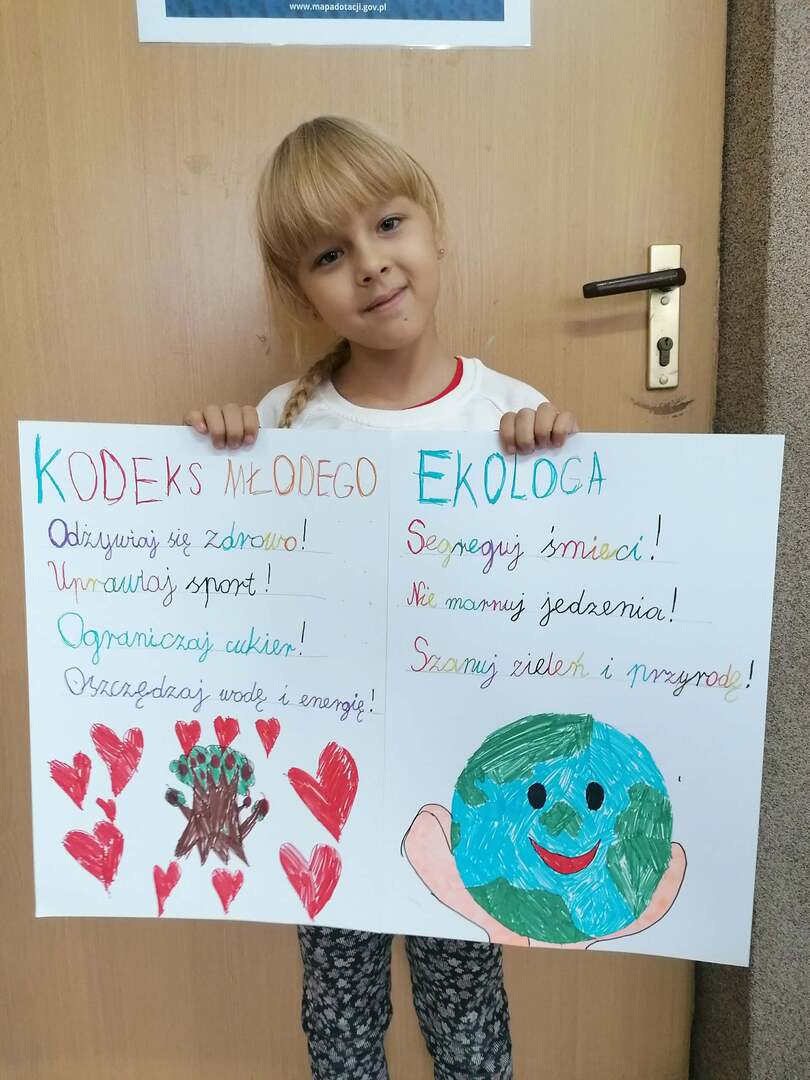 www.mapadotacji.gov.pl
KODEKS MŁODEGO EKOLOGA
Odżywiaj się zdrowo!
Uprawiaj sport!
Ograniczaj cukier!
Oszczędzaj wodę i energię!
Segreguj śmieci!
Nie marnuj jedzenia!
Szanuj zieleń i przyrodę!